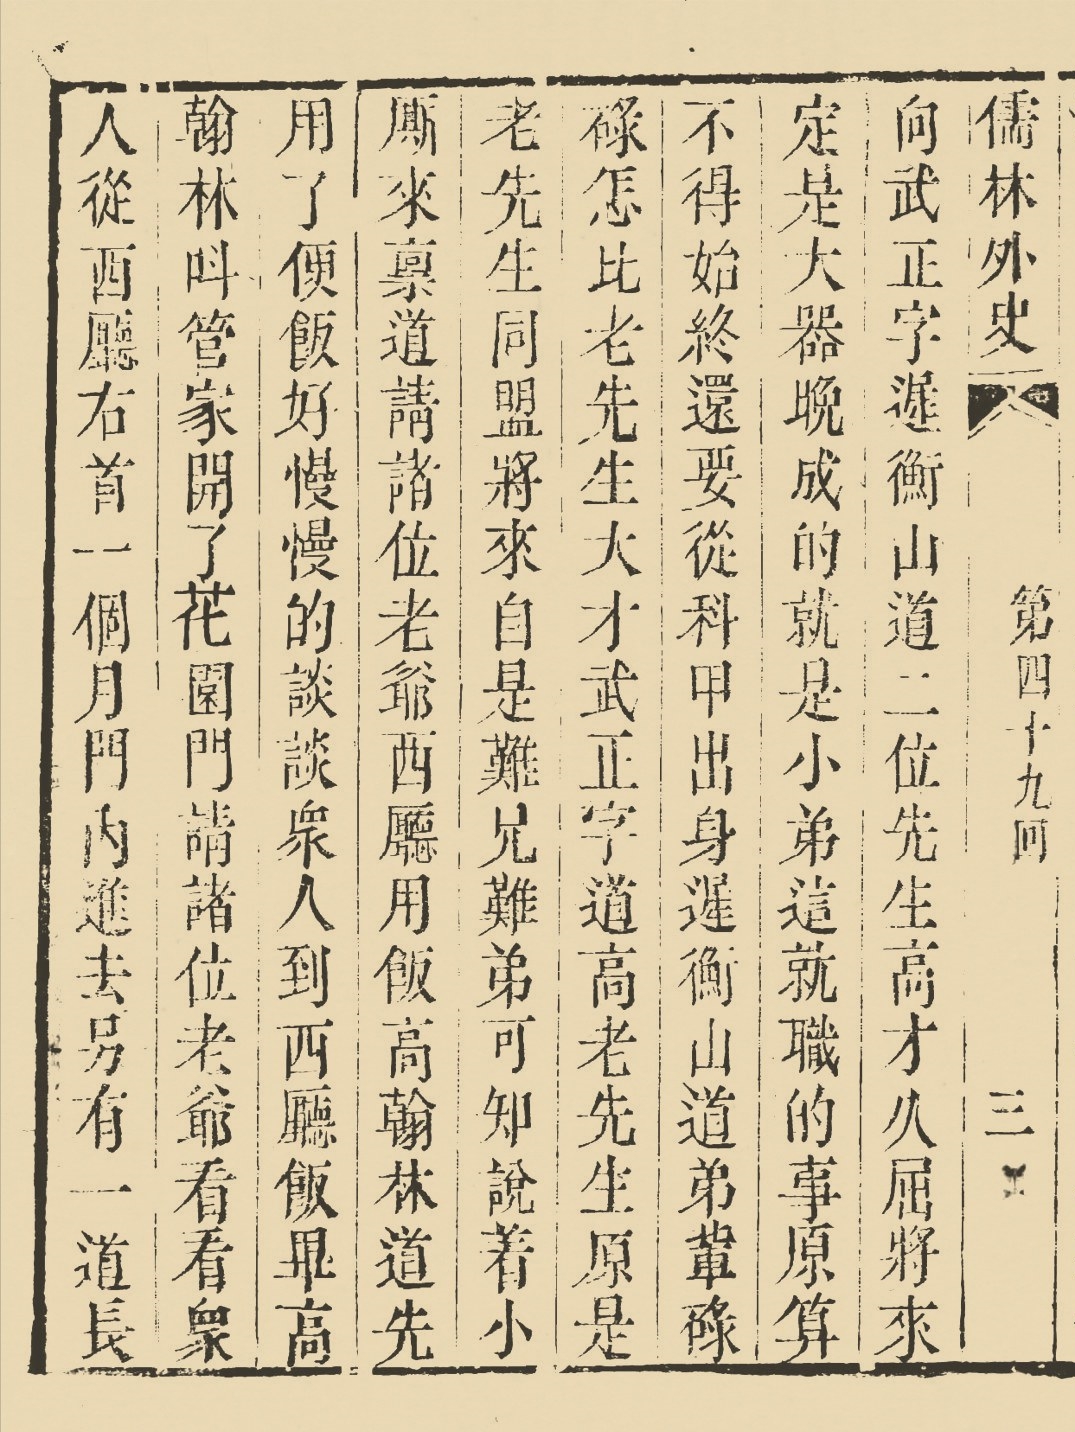 儒林外史 第四十九回 三
向武正字遲衡山道二位先生高才久屈將來
定是大器晚成的就是小弟這就職的事原算
不得始終還要從科甲出身遲衡山道弟軰碌
碌怎比老先生大才武正字道高老先生原是
老先生同盟將來自是難兄難弟可知說着小
厮來禀道請諸位老爺西廳用飯高翰林道先
用了便飯好慢慢的談談衆人到西廳飯畢高
翰林呌管家開了花園門請諸位老爺看看衆
人從西廳右首一個月門內進去另有一道長